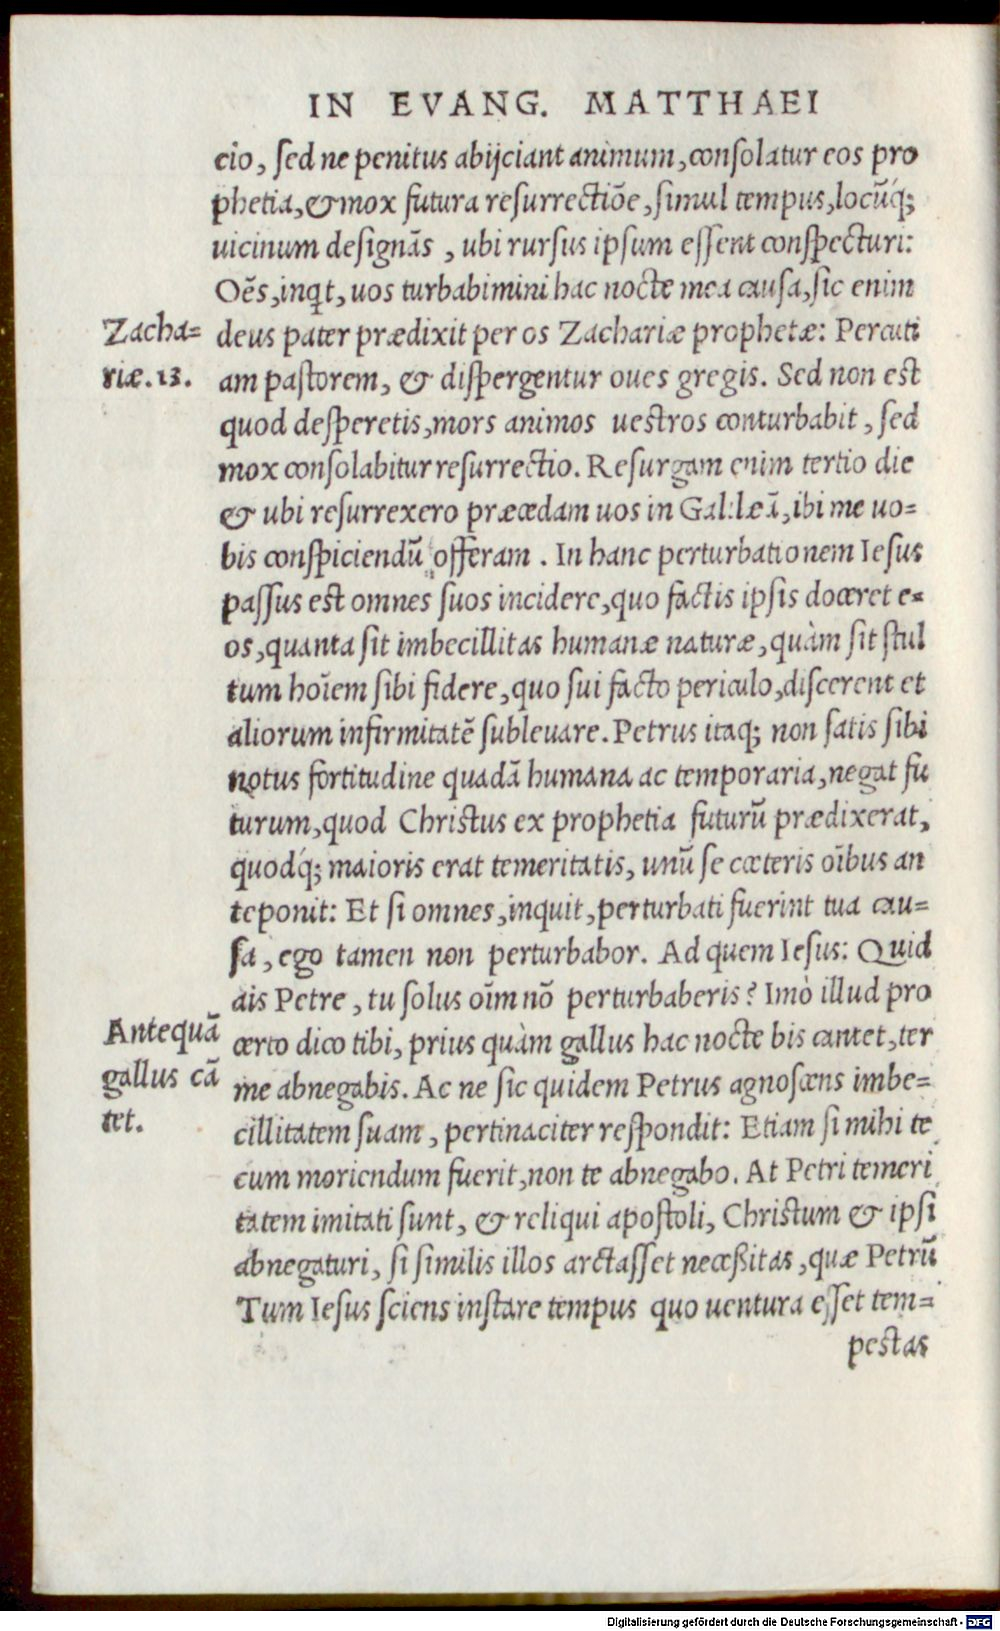 IN EVANG. MATTHAEI
cio, sed ne penitus abijciant animum, consolatur eos pro
phetia, & mox futura resurrectiõe, simul tempus, locũq́;
uicinum designãs, ubi rursus ipsum essent conspecturi:
Oẽs, inqt, uos turbabimini hac nocte mea causa, sic enim
Zacha=
riæ. 13.
deus pater prædixit per os Zachariæ prophetæ: Percuti
am pastorem, & dispergentur oues gregis. Sed non est
quod desperetis, mors animos uestros conturbabit, sed
mox consolabitur resurrectio. Resurgam enim tertio die
& ubi resurrexero præcedam uos in Galilæã, ibi me uo=
bis conspiciendũ offeram. In hanc perturbationem Iesus
passus est omnes suos incidere, quo factis ipsis doceret e=
os, quanta sit imbecillitas humanæ naturæ, quàm sit stul
tum hoĩem sibi fidere, quo sui facto periculo, discerent et
aliorum infirmitatẽ subleuare. Petrus itaq; non satis sibi
notus fortitudine quadã humana ac temporaria, negat fu
turum, quod Christus ex prophetia futurũ prædixerat,
quodq́; maioris erat temeritatis, unũ se cæteris oĩbus an
teponit: Et si omnes, inquit, perturbati fuerint tua cau=
sa, ego tamen non perturbabor. Ad quem Iesus: Quid
ais Petre, tu solus oĩm nõ perturbaberis? Imò illud pro
Antequã
gallus cã
tet.
certo dico tibi, prius quàm gallus hac nocte bis cantet, ter
me abnegabis. Ac ne sic quidem Petrus agnoscens imbe=
cillitatem suam, pertinaciter respondit: Etiam si mihi te
cum moriendum fuerit, non te abnegabo. At Petri temeri
tatem imitati sunt, & reliqui apostoli, Christum & ipsi
abnegaturi, si similis illos arctasset neceßitas, quæ Petrũ
Tum Iesus sciens instare tempus quo uentura esset tem=
pestas
Digitalisierung gefördert durch die Deutsche Forschungsgemeinschaft - DFG